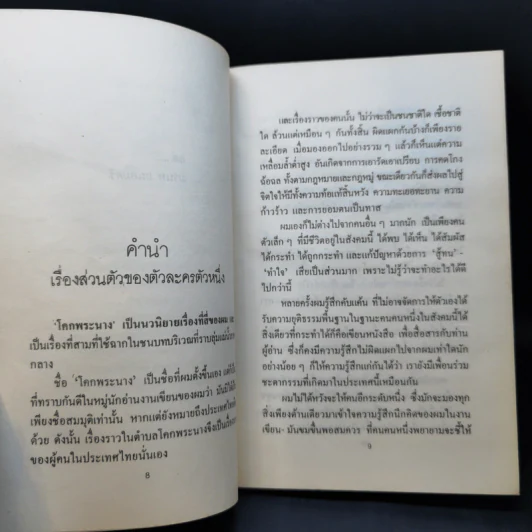 คำนำ
เรื่องส่วนตัวของตัวละครตัวหนึ่ง
'โคกพระนาง' เป็นนวนิยายเรื่องที่สี่ของผม และ
เป็นเรื่องที่สามที่ใช้ฉากในชนบทบริเวณที่ราบลุ่มแม่น้ำ
กลาง
ชื่อ 'โคกพระนาง' เป็นชื่อที่ผมตั้งขึ้นเอง แต่ก็
ที่ทราบกันดีในหมู่นักอ่านงานเขียนของผมว่า มันมิได้
เพียงชื่อสมมุติเท่านั้น หากแต่ยังหมายถึงประเทศไทย
ด้วย ดังนั้น เรื่องราวในตำบลโคกพระนางจึงเป็นเรื่อง
ของผู้คนในประเทศไทยนั่นเอง
8
และเรื่องราวของคนนั้น ไม่ว่าจะเป็นชนชาติใด เชื้อชาติ
ใด ล้วนแต่เหมือน ๆ กันทั้งสิ้น ผิดแผกกันบ้างก็เพียงราย
ละเอียด เมื่อมองออกไปอย่างรวม ๆ แล้วก็เห็นแต่ความ
เหลื่อมล้ำต่ำสูง อันเกิดจากการเอารัดเอาเปรียบ การคดโกง
ฉ้อฉล ทั้งตามกฎหมายและกฎหมู่ ขณะเดียวกันก็ส่งผลไปสู่
จิตใจให้มีทั้งความท้อแท้สิ้นหวัง ความทะเยอทะยาน ความ
ก้าวร้าว และการยอมตนเป็นทาส
ผมเองก็ไม่ต่างไปจากคนอื่น ๆ มากนัก เป็นเพียงคน
ตัวเล็ก ๆ ที่มีชีวิตอยู่ในสังคมนี้ ได้พบ ได้เห็น ได้สัมผัส
ได้กระทำ ได้ถูกกระทำ และแก้ปัญหาด้วยการ "สู้ทน" -
"ทำใจ" เสียเป็นส่วนมาก เพราะไม่รู้ว่าจะทำอะไรได้ดี
ไปกว่านี้
หลายครั้งผมรู้สึกคับแค้น ที่ไม่อาจจัดการให้ตัวเองได้
รับความยุติธรรมพื้นฐานในฐานะคนคนหนึ่งในสังคมนี้ได้
สิ่งเดียวที่กระทำได้ก็คือเขียนหนังสือ เพื่อสื่อสารกับท่าน
ผู้อ่าน ซึ่งก็คงมีความรู้สึกไม่ผิดแผกไปจากผมเท่าใดนัก
อย่างน้อย ๆ ก็ให้ความรู้สึกแก่กันได้ว่า เรายังมีเพื่อนร่วม
ชะตากรรมที่เกิดมาในประเทศนี้เหมือนกัน
ผมไม่ได้หวังจะให้คนอีกระดับหนึ่ง ซึ่งมักจะมองทุก
สิ่งเพียงด้านเดียวมาเข้าใจความรู้สึกนึกคิดของผมในงาน
เขียน- มันขมขื่นพอสมควร ที่คนคนหนึ่งพยายามจะชี้ให้
9